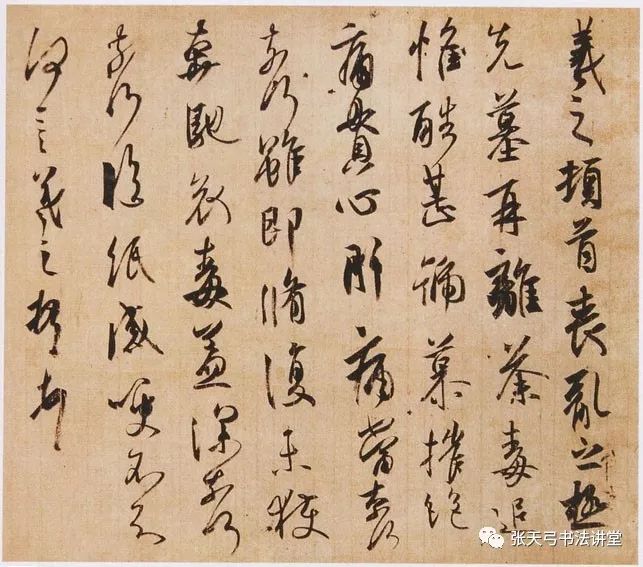 羲之頓首喪亂之極
先墓再離荼毒追
惟酷甚號慕摧絕
痛貫心肝痛當奈何
奈何雖即脩復未獲
奔馳哀毒益深奈何
奈何臨紙感哽不知
何言羲之頓首頓首
张天弓书法讲堂